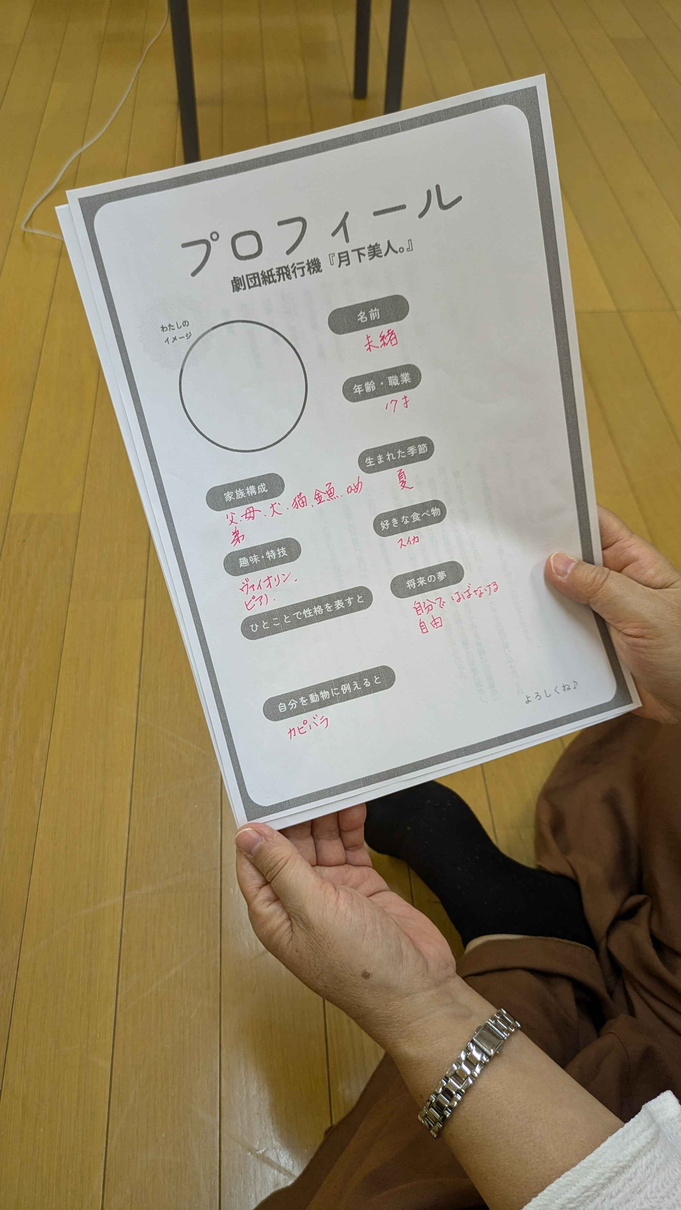 プロフィール
劇団紙飛行機『月下美人。』
わたしの
イメージ
名前
未緒
年齢・職業
17才
生まれた季節
夏
家族構成
父.母.犬.猫.金魚.
弟
好きな食べ物
スイカ
趣味・特技
ヴァイオリン.
ピアノ.
将来の夢
自分で はばたける
自由
ひとことで性格を表すと
自分を動物に例えると
カピバラ
よろしくね♪